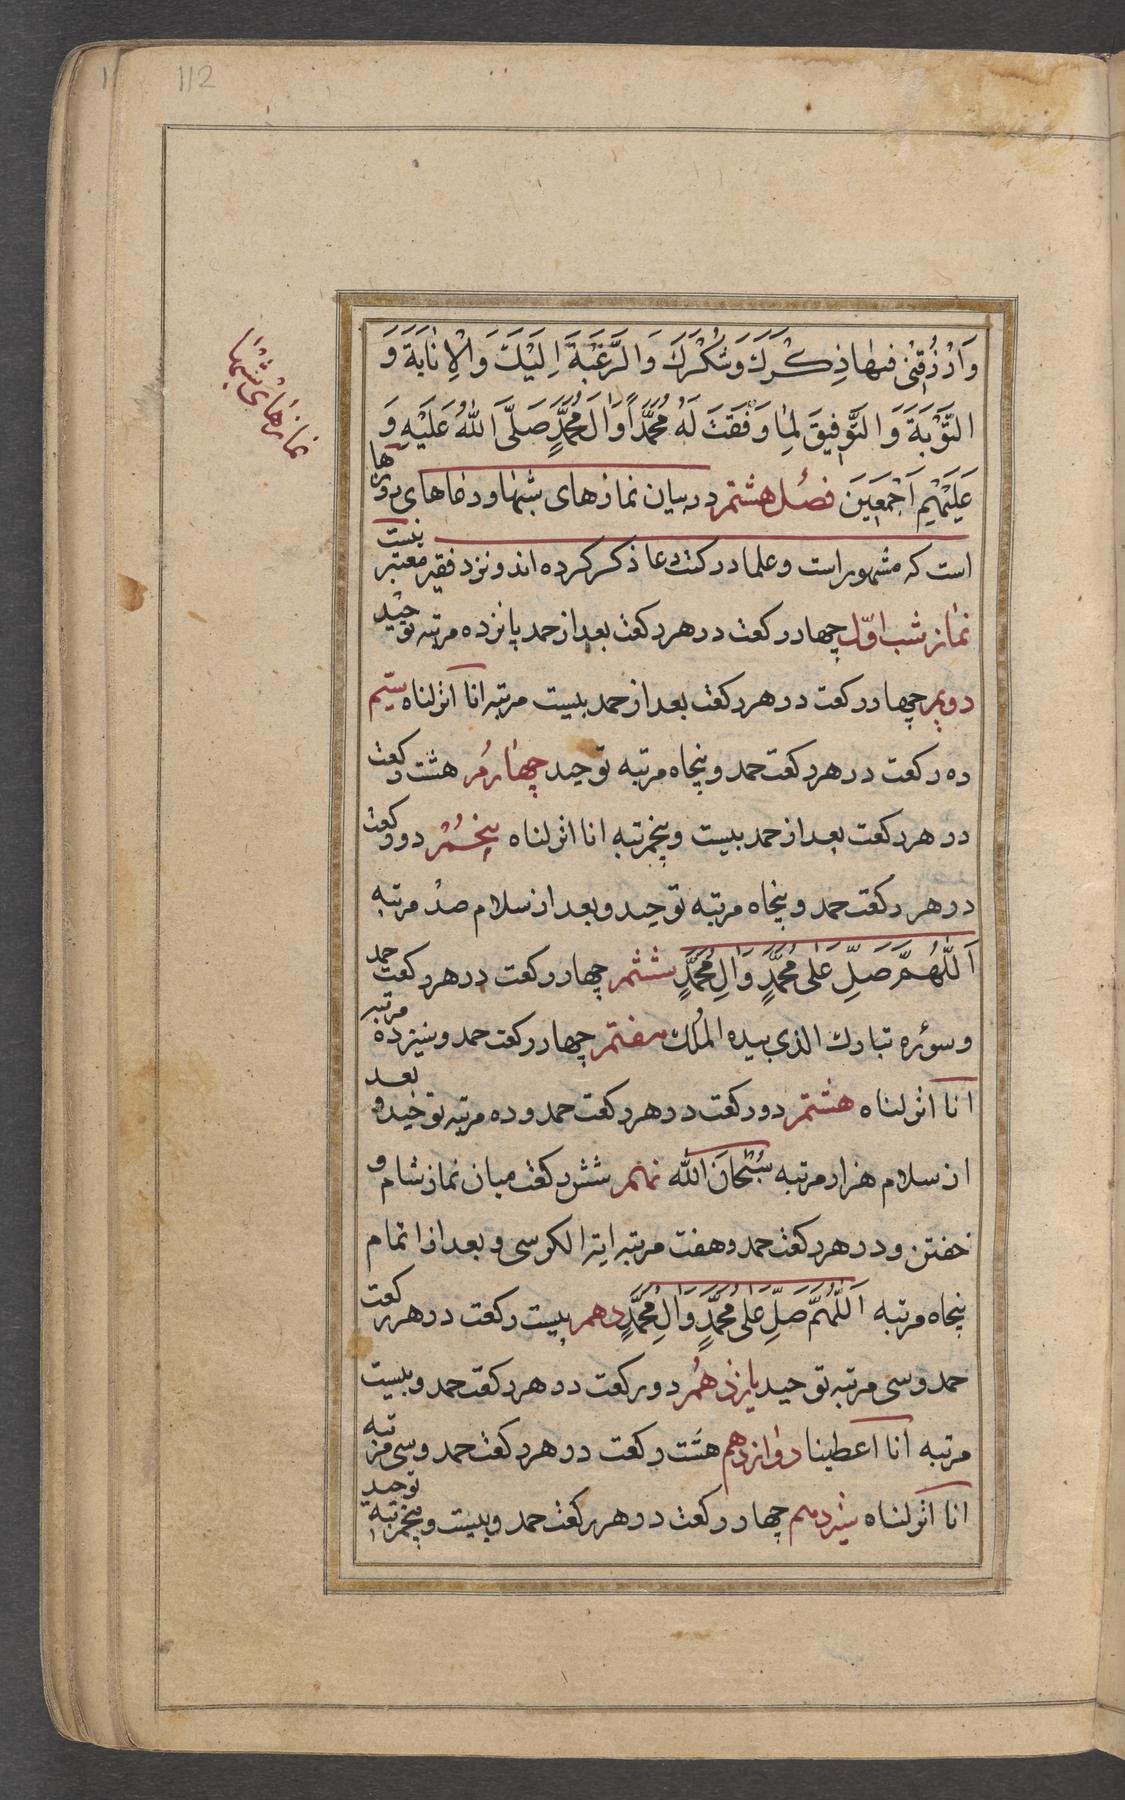 112
نمازهای شبها
وَارْزُقْنی فیهٰا ذِکْرَكَ وَشُکْرَكَ وَالرَّغْبَةَ اِلَیْكَ وَالْاِنٰابَةَ وَ
التَّوْبَةَ وَالتَّوفیقَ لِمٰا وَفَّقْتَ لَهُ مُحَمَّداً وَاٰلَ مُحَمَّدٍ صَلَّی اللهُ عَلَیْهِ وَ
عَلَیْهِم اَجْمَعینَ فصل هشتم در بیان نمازهای شبها و دعاهای روزها
است که مشهور است و علما در کتب دعا ذکر کرده اند و نزد فقیر معتبر نیست
نماز شب اوّل چهار رکعت در هر رکعت بعد از حمد پانزده مرتبه توحید
دویم چهار رکعت در هر رکعت بعد از حمد بیست مرتبه انا انزلناه سیّم
ده رکعت در هر رکعت حمد و پنجاه مرتبه توحید چهارم هشت رکعت
در هر رکعت بعد از حمد بیست و پنجمرتبه انا انزلناه پنجم دو رکعت
در هر رکعت حمد و پنجاه مرتبه توحید و بعد از سلام صد مرتبه
اَللّٰهُمَّ صَلِّ عَلٰی مُحَمَّدٍ وَاٰلِ مُحَمَّدٍ ششم چهار رکعت در هر رکعت حمد
و سوره تبارك الذی بیده الملك هفتم چهار رکعت حمد و سیزده مرتبه
انا انزلناه هشتم دو رکعت در هر رکعت حمد و ده مرتبه توحید و بعد
از سلام هزار مرتبه سُبْحٰانَ الله نهم شش رکعت میان نماز شام و
خفتن و در هر رکعت حمد و هفت مرتبه ایة الکرسی و بعد از اتمام
پنجاه مرتبه اَللّٰهُمَّ صَلِّ عَلٰی مُحَمَّدٍ وَاٰلِ مُحَمَّدٍ دهم بیست رکعت در هر رکعت
حمد و سی مرتبه توحید یازدهم دو رکعت در هر رکعت حمد و بیست
مرتبه انا اعطینا دوازدهم هشت رکعت در هر رکعت حمد و سی مرتبه
انا انزلناه سیزدهم چهار رکعت در هر رکعت حمد و بیست و پنجمرتبه توحید